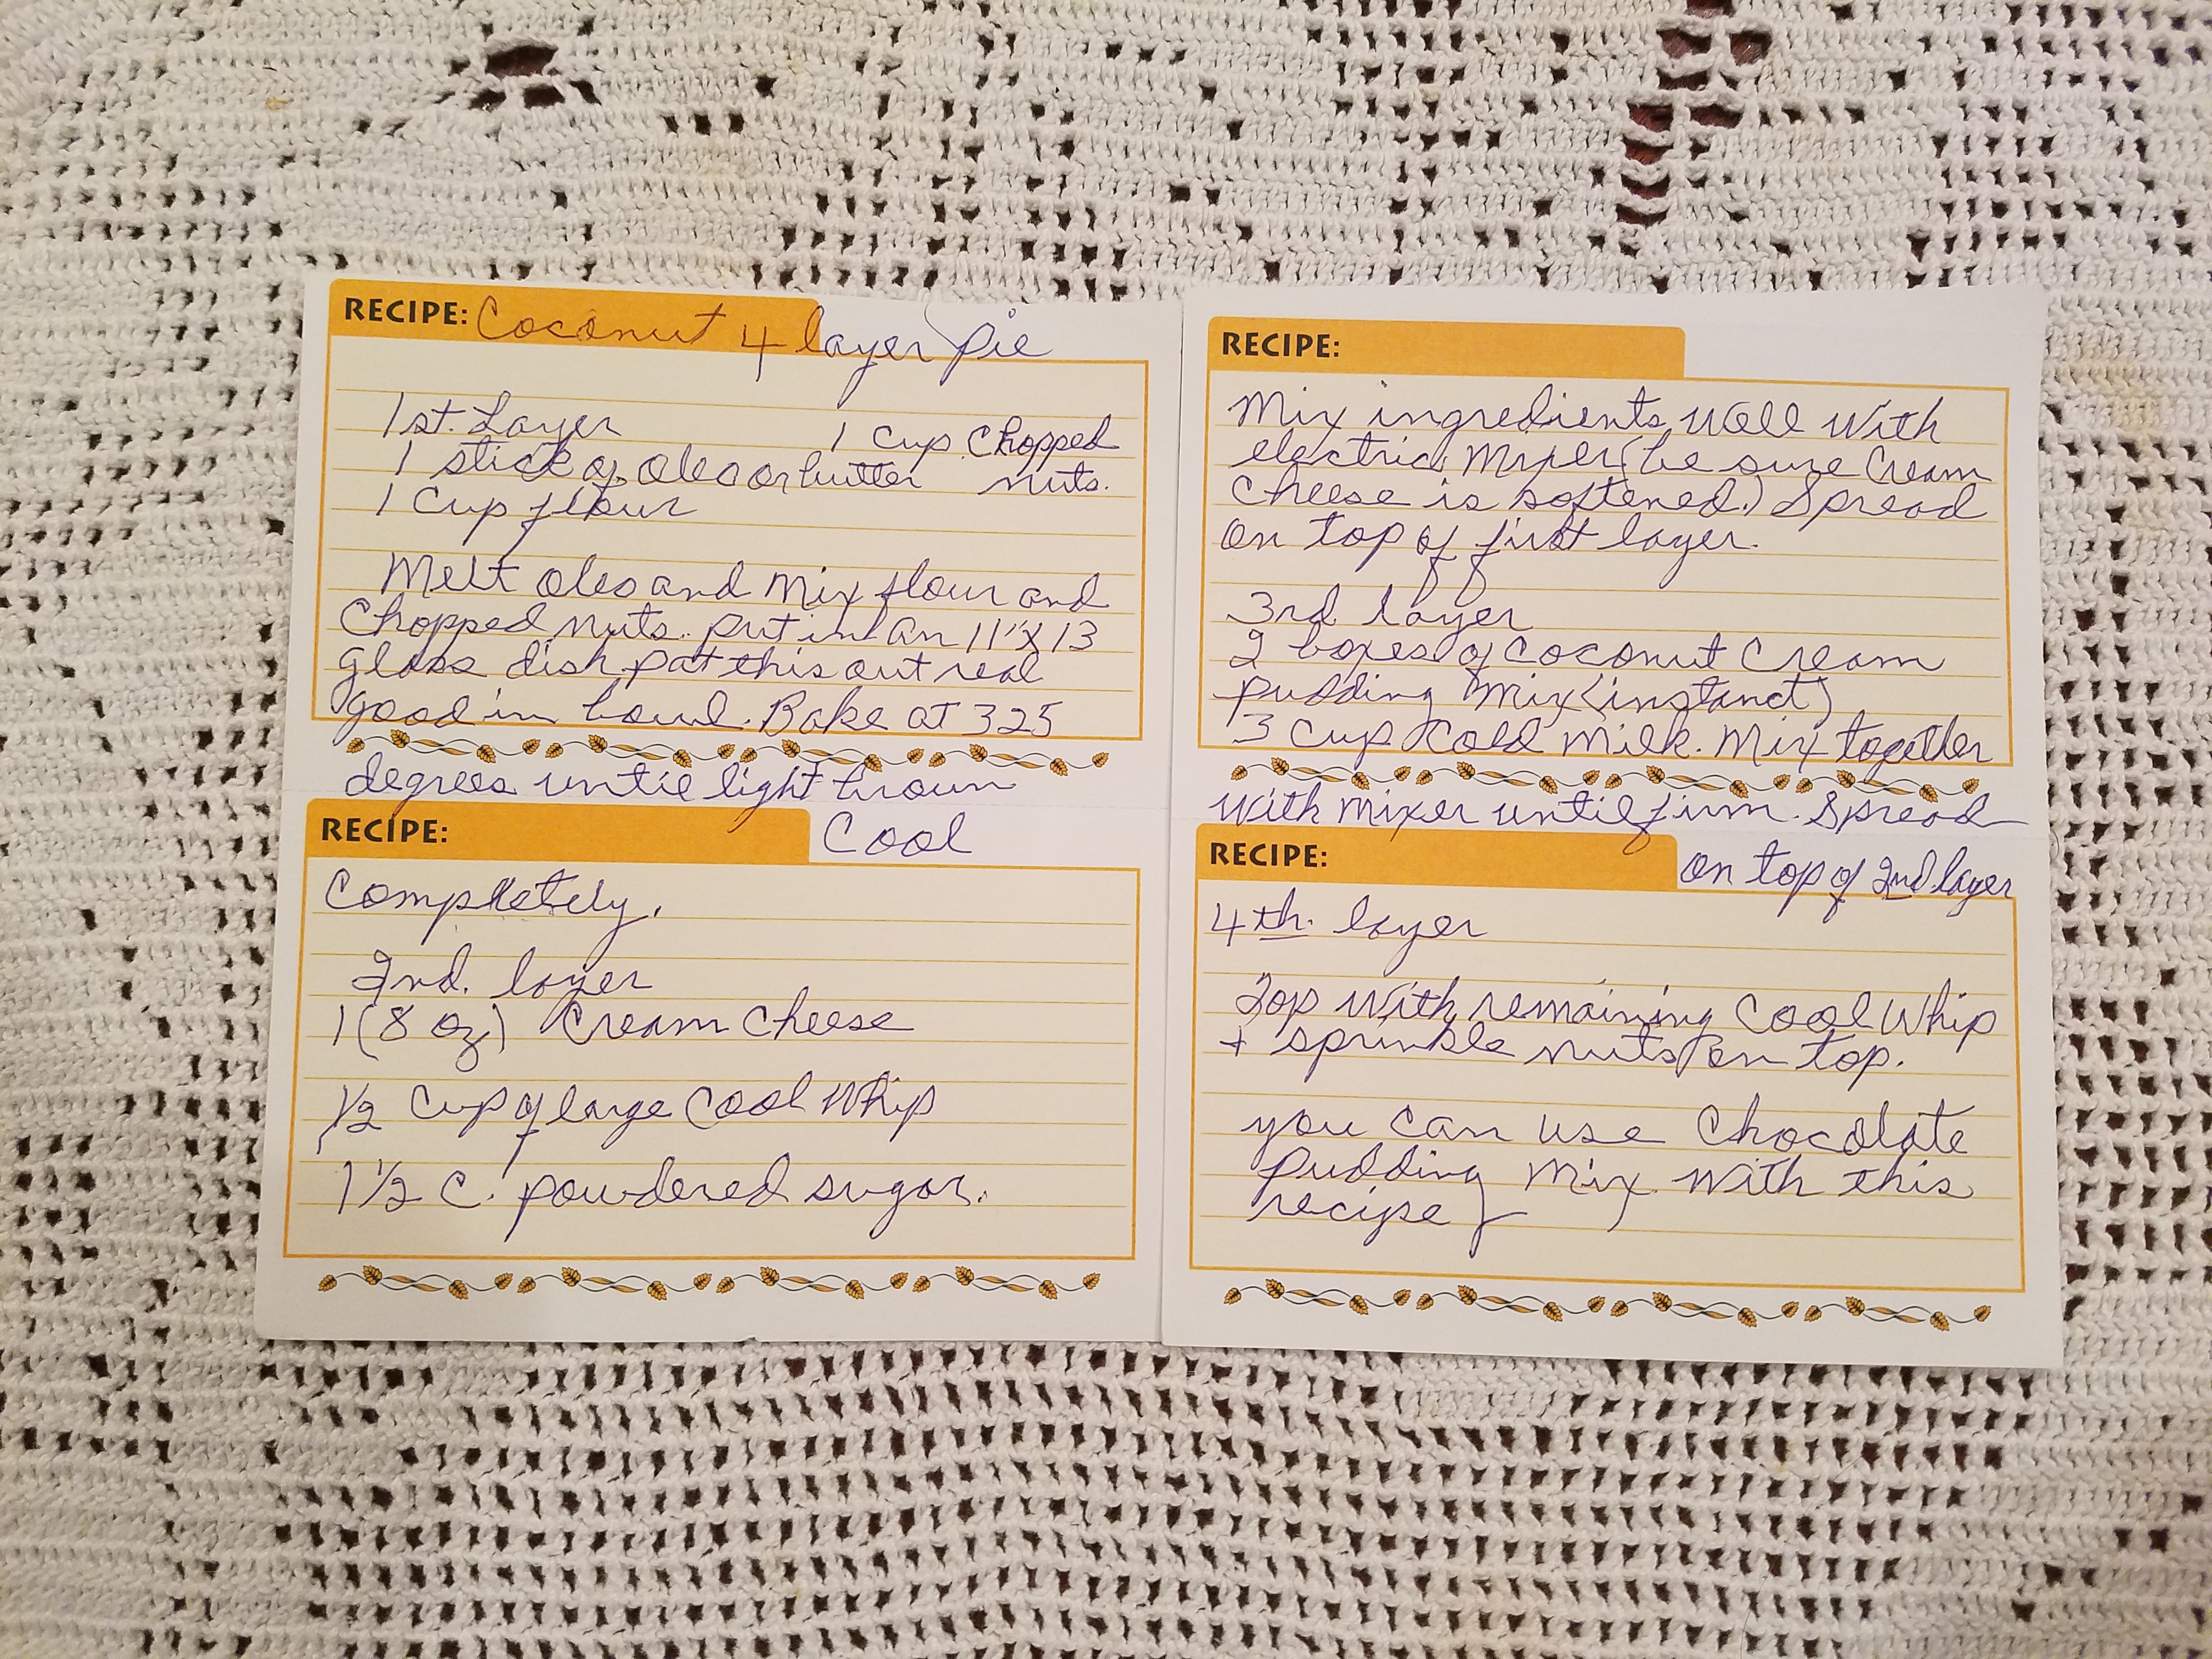 RECIPE: Coconut 4 layer pie
1st. Layer
1 cup chopped nuts.
1 stick of oleo or butter
1 cup flour
Melt oleo and mix flour and
chopped nuts. put in an 11" x 13
glass dish pat this out real
good in bowl. Bake at 325
degrees until light brown
RECIPE: Cool
Completely.
2nd. layer
1 (8 oz) Cream Cheese
1/2 Cup of large Cool Whip
1 1/2 C. powdered sugar.
RECIPE:
Mix ingredients well with
electric mixer (be sure cream
cheese is softened.) Spread
on top of first layer.
3rd layer
2 boxes of coconut cream
pudding mix (instanct)
3 cup cold milk. Mix together
with mixer until firm. Spread
RECIPE: on top of 2nd layer
4th. layer
Top with remaining Cool Whip
+ sprinkle nuts on top.
you can use chocolate
pudding mix with this
recipe